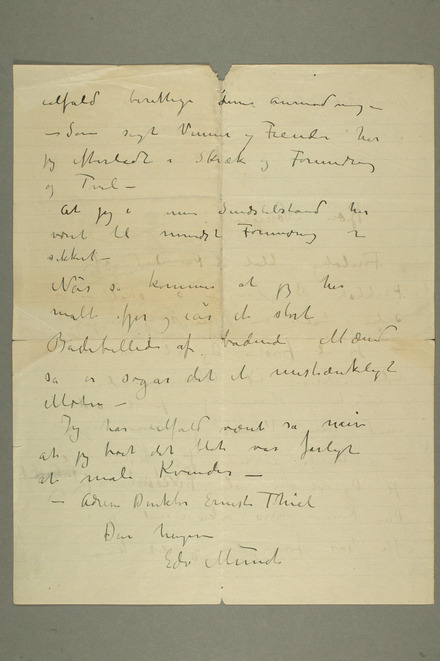 ialfald berettige denne anmodning –
– Som sagt Venner og Fiender har
jeg efterladt i Skræk og Forundring
og Tvil –
At jeg i min Sindstilstand har
vært til mindst Forundring er
sikkert –
Når så kommer at jeg har
malt ifjor og iår et stort
Badebillede af badende Mænd
så er sogar det et mistænkeligt
Motiv –
Jeg har ialfald vært så naiv
at jeg troet det blot var farligt
at male Kvinder –
– Adresse Direktør Ernest Thiel
Din hengivne
Edv Munch